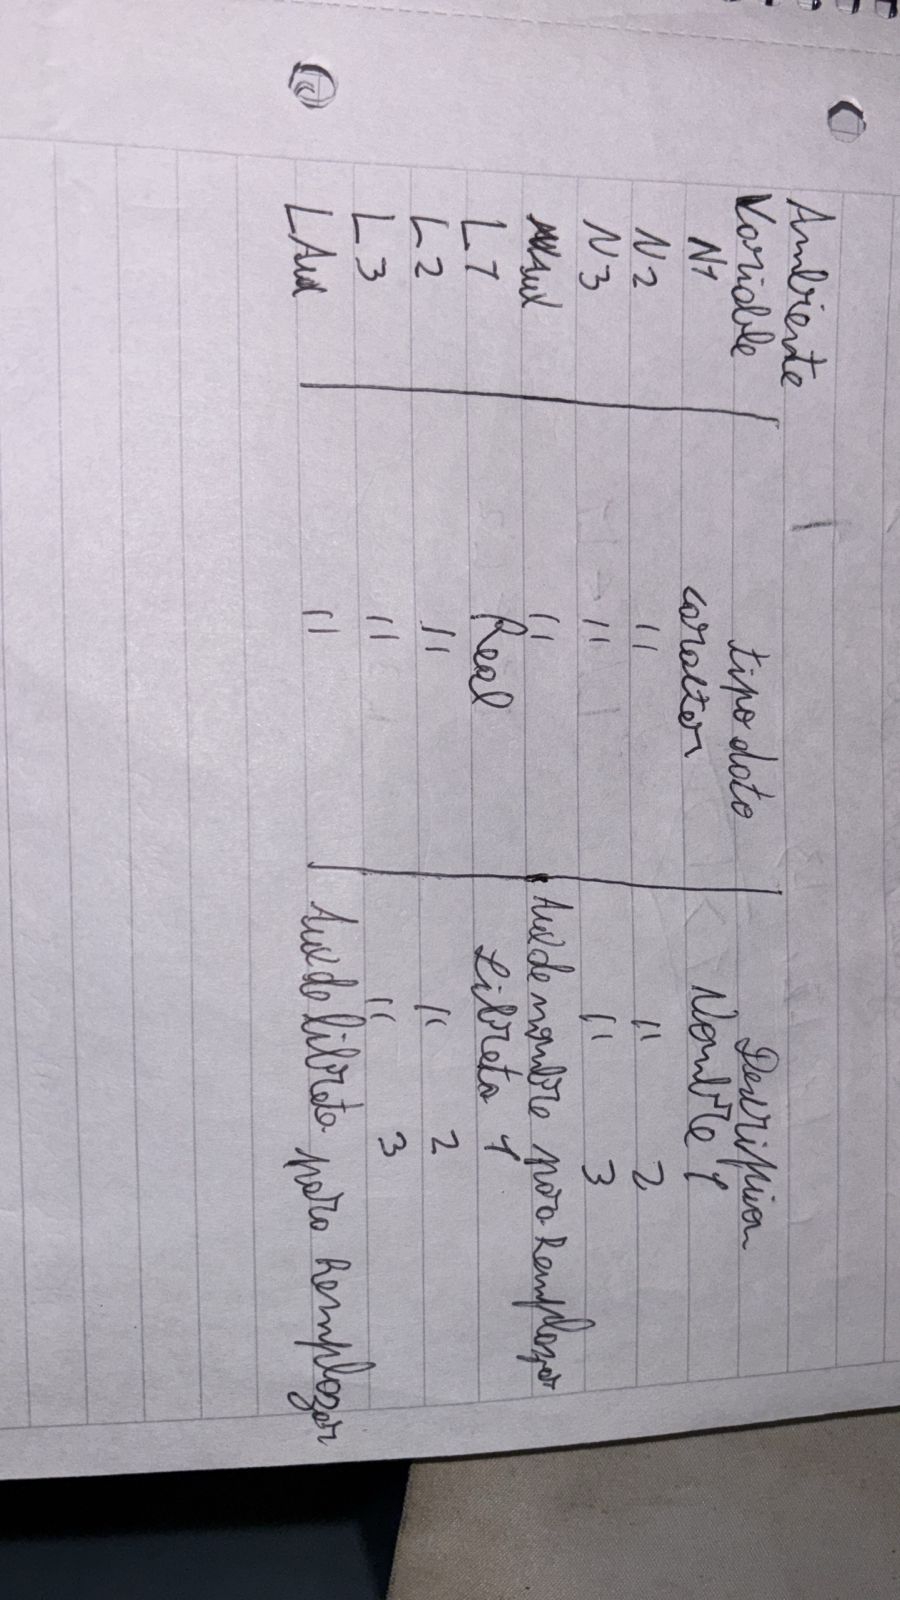 Ambiente
Variable tipo dato Descripcion
N1 caracter Nombre 1
N2 " " 2
N3 " " 3
NAux " Aux de nombre para Remplazar
L1 Real Libreta 1
L2 " " 2
L3 " " 3
LAux " Aux de libreta para Remplazar